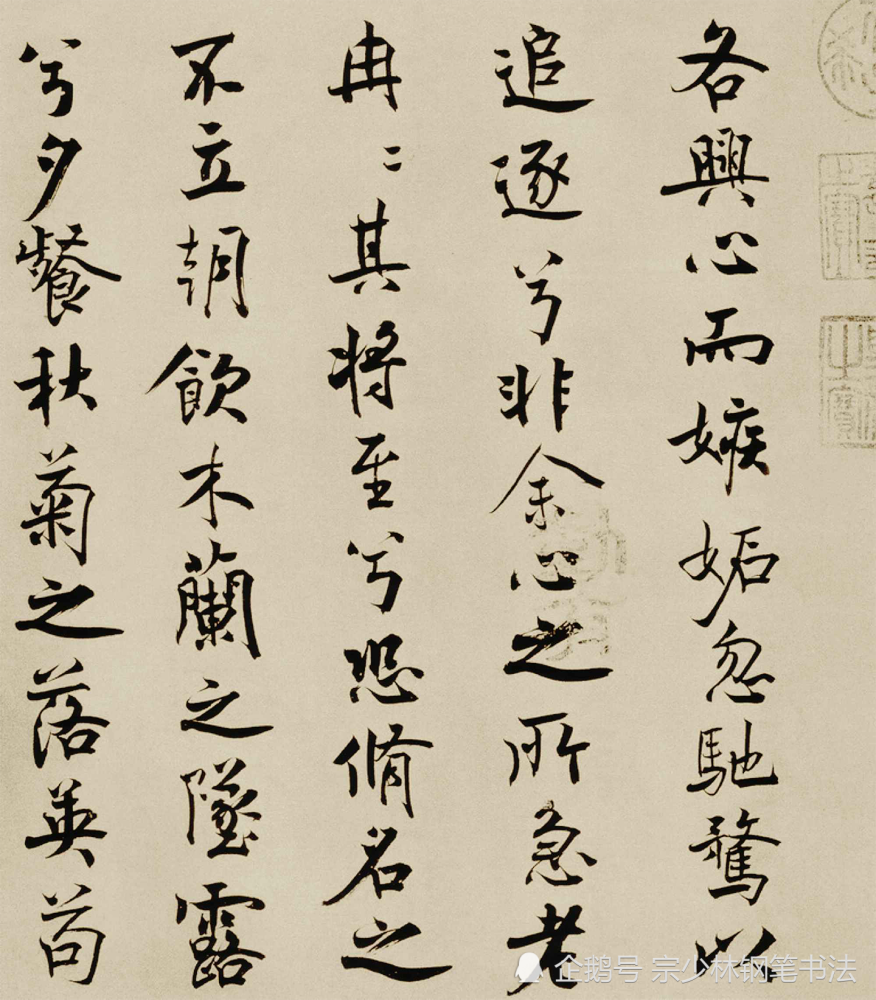 各興心而嫉妬忽馳騖以
追逐兮非余心之所急老
冉〻其將至兮恐脩名之
不立朝飲木蘭之墜露
兮夕餐秋菊之落英苟
企鹅号 宗少林钢笔书法